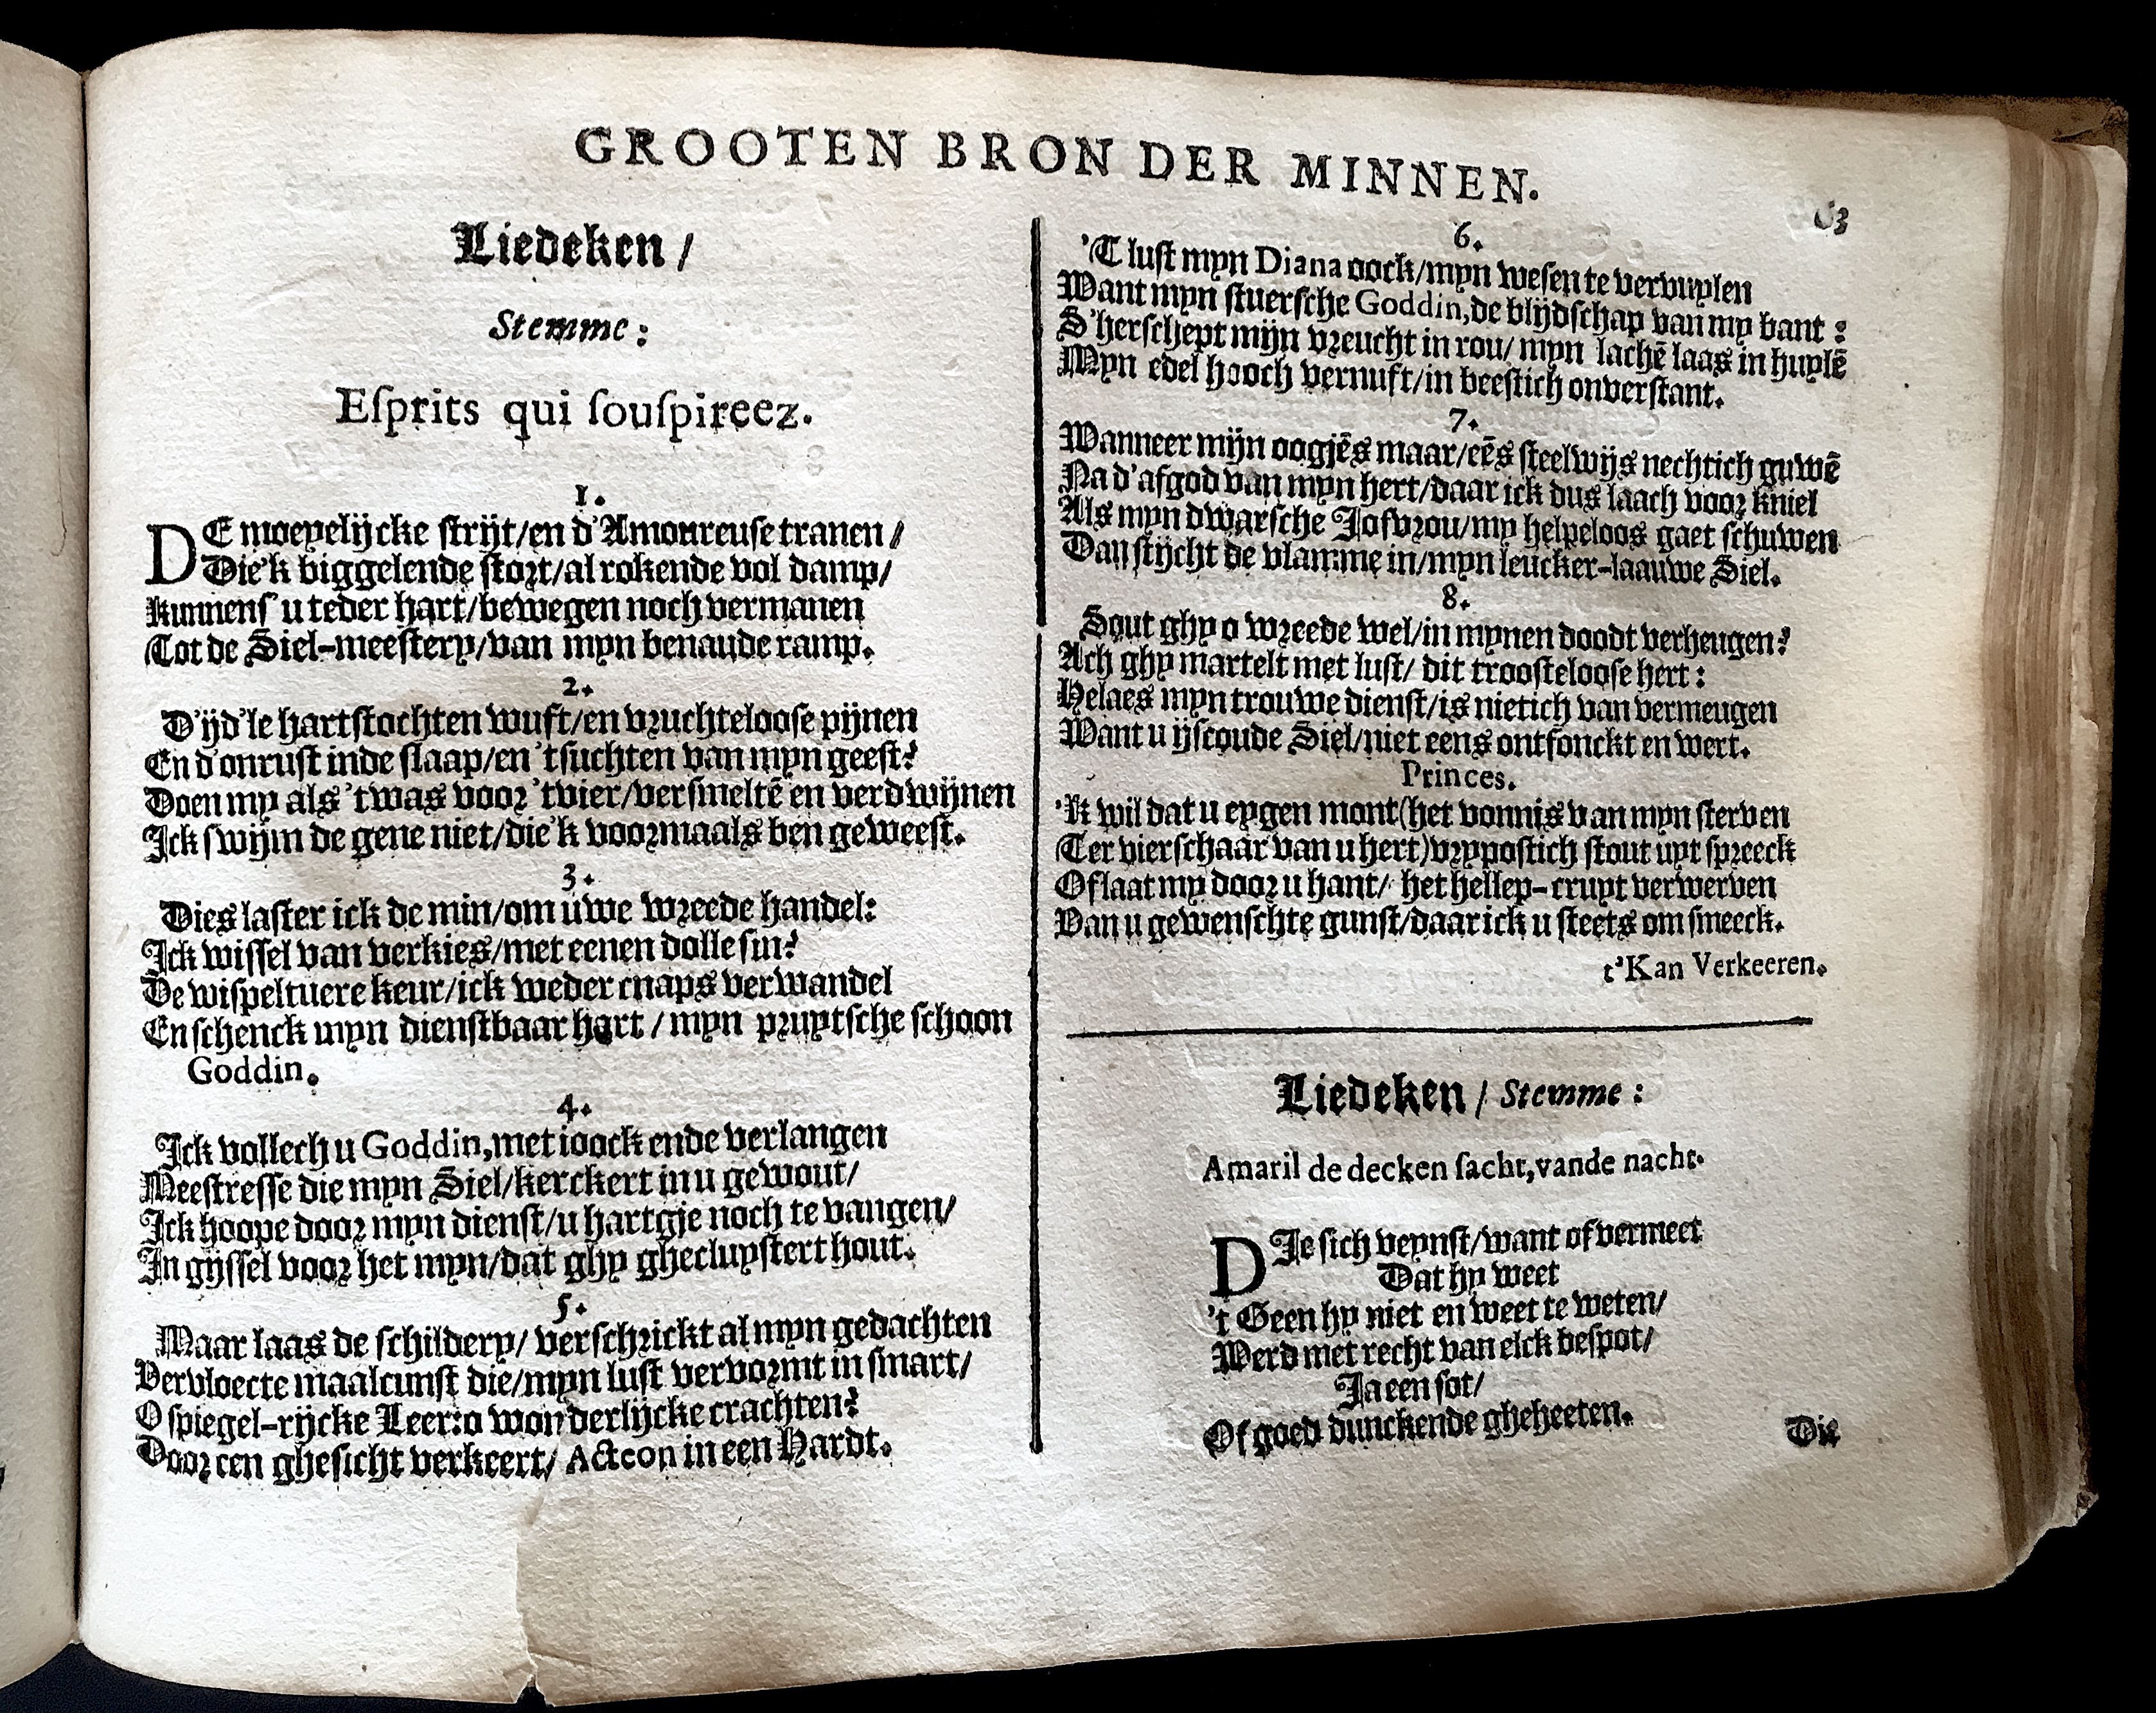 GROOTEN BRON DER MINNEN.
63
Liedeken /
Stemme:
Eſprits qui ſouſpireez.
1.
DE moeyelijcke ſtrijt/en d'Amoureuse tranen/
Die'k biggelende ſtort/al rokende vol damp/
Kunnenſ' u teder hart/bewegen noch vermanen
Tot de Siel-meeſtery/van myn benaude ramp.
2.
D'ijd'le hartſtochten wuft/en vruchtelooſe pijnen
En d'onruſt inde ſlaap/en 'tſuchten van myn geeſt?
Doen my als 'twas voor 'tvier/verſmeltē en verdwijnen
Ick ſwijm de gene niet/die'k voormaals ben geweeſt.
3.
Dies laſter ick de min/om uwe wreede handel:
Ick wiſſel van verkies/met eenen dolle ſin?
De wiſpeltuere keur/ick weder cnaps verwandel
En ſchenck myn dienſtbaar hart / myn pruytſche ſchoon
Goddin.
4.
Ick vollech u Goddin,met ioock ende verlangen
Meeſtreſſe die myn Siel/kerckert in u gewout/
Ick hoope door myn dienſt/u hartgje noch te vangen/
In gijſſel voor het myn/dat ghy ghecluyſtert hout.
5.
Maar laas de ſchildery/ verſchrickt al myn gedachten
Vervloecte maalcunſt die/myn luſt vervormt in ſmart/
O ſpiegel-rijcke Leer:o wonderlijcke crachten?
Door een gheſicht verkeert/ Acteon in een Hardt.
6.
'T luſt myn Diana oock/myn weſen te vervuylen
Want myn ſtuerſche Goddin,de blijdſchap van my bant :
S'herſchept mijn vreucht in rou/ myn lachē laas in huylē
Myn edel hooch vernuft/in beeſtich onverſtant.
7.
Wanneer mijn oogjēs maar/eēs ſteelwijs nechtich guwē
Na d'afgod van myn hert/daar ick dus laach voor kniel
Als myn dwarſche Jofvrou/my helpeloos gaet ſchuwen
Dan ſtijcht de vlamme in/myn leucker-laauwe Siel.
8.
Sout ghy o wreede wel/in mynen doodt verheugen?
Ach ghy martelt met luſt/ dit trooſtelooſe hert :
Helaes myn trouwe dienſt/is nietich van vermeugen
Want u ijſcoude Siel/niet eens ontfonckt en wert.
Princes.
'K wil dat u eygen mont(het vonnis van myn ſterven
Ter vierſchaar van u hert)vrypoſtich ſtout uyt ſpreeck
Of laat my door u hant/ het hellep-cruyt verwerven
Van u gewenſchte gunſt/daar ick u ſteets om ſmeeck.
t'Kan Verkeeren.
Liedeken / Stemme :
Amaril de decken ſacht,vande nacht.
DIe ſich veynſt/want of vermeet
Dat hy weet
't Geen hy niet en weet te weten/
Werd met recht van elck beſpot/
Ja een ſot/
Of goed dunckende gheheeten.
Die